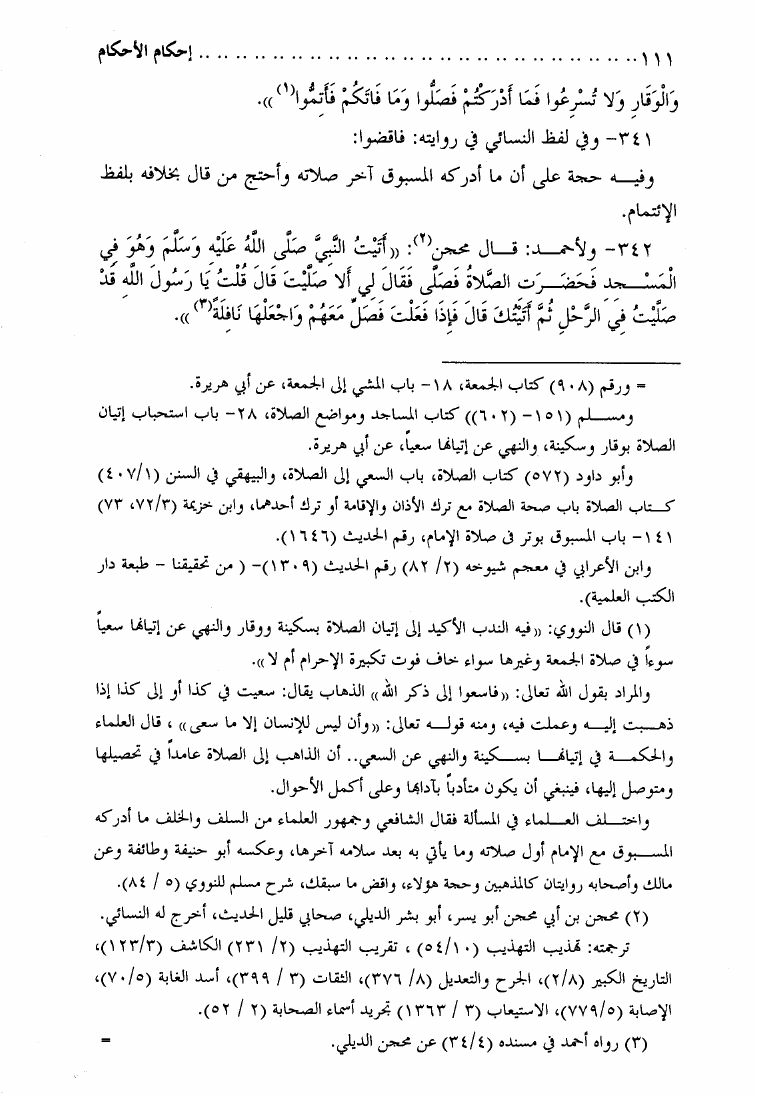 ١١١ ............................................. إحكام الأحكام
وَالْوَقَارِ وَلا تُسْرِعُوا فَمَا أَدْرَكْتُمْ فَصَلُّوا وَمَا فَاتَكُمْ فَأَتِمُّوا(١)».
٣٤١- وفي لفظ النسائي في روايته: فاقضوا:
وفيـــه حجة على أن ما أدركه المسبوق آخر صلاته وأحتج من قال بخلافه بلفظ
الإئتمام.
٣٤٢- ولأحمـــد: قـــال محجن(٢): «أَتَيْتُ النَّبِيَّ صَلَّى اللَّهُ عَلَيْهِ وَسَلَّمَ وَهُوَ فِي
الْمَسْـــجِدِ فَحَضَـــرَتِ الصَّلاةُ فَصَلَّى فَقَالَ لِي أَلا صَلَّيْتَ قَالَ قُلْتُ يَا رَسُولَ اللَّهِ قَدْ
صَلَّيْتُ فِي الرَّحْلِ ثُمَّ أَتَيْتُكَ قَالَ فَإِذَا فَعَلْتَ فَصَلِّ مَعَهُمْ وَاجْعَلْهَا نَافِلَةً(٣)».
= ورقم (٩٠٨) كتاب الجمعة، ١٨- باب المشي إلى الجمعة، عن أبي هريرة.
ومســـلم (١٥١- (٦٠٢)) كتاب المساجد ومواضع الصلاة، ٢٨- باب استحباب إتيان
الصلاة بوقار وسكينة، والنهي عن إتيانها سعياً، عن أبي هريرة.
وأبو داود (٥٧٢) كتاب الصلاة، باب السعي إلى الصلاة، والبيهقي في السنن (٤٠٧/١)
كـــتاب الصلاة باب صحة الصلاة مع ترك الأذان والإقامة أو ترك أحدهما، وابن خزيمة (٧٢/٣، ٧٣)
١٤١- باب المسبوق بوتر فى صلاة الإمام، رقم الحديث (١٦٤٦).
وابن الأعرابي في معجم شيوخه (٢/ ٨٢) رقم الحديث (١٣٠٩)- ( من تحقيقنا - طبعة دار
الكتب العلمية).
(١) قال النووي: «فيه الندب الأكيد إلى إتيان الصلاة بسكينة ووقار والنهي عن إتيانها سعياً
سوءاً في صلاة الجمعة وغيرها سواء خاف فوت تكبيرة الإحرام أم لا».
والمراد بقول الله تعالى: «فاسعوا إلى ذكر الله» الذهاب يقال: سعيت في كذا أو إلى كذا إذا
ذهـــبت إليـــه وعملت فيه، ومنه قولـــه تعالى: «وأن ليس للإنسان إلا ما سعى» ، قال العلماء
والحكمـــة في إتيانهـــا بســـكينة والنهي عن السعي.. أن الذاهب إلى الصلاة عامداً في تحصيلها
ومتوصل إليها، فينبغي أن يكون متأدباً بآدابها وعلى أكمل الأحوال.
واختـــلف العـــلماء في المسألة فقال الشافعي وجمهور العلماء من السلف والخلف ما أدركه
المســـبوق مع الإمام أول صلاته وما يأتي به بعد سلامه آخرها، وعكسه أبو حنيفة وطائفة وعن
مالك وأصحابه روايتان كالمذهبين وحجة هؤلاء، واقض ما سبقك، شرح مسلم للنووي (٥ / ٨٤).
(٢) محجن بن أبي محجن أبو يسر، أبو بشر الديلي، صحابي قليل الحديث، أخرج له النسائي.
ترجمته: تهذيب التهذيب (٥٤/١٠) ، تقريب التهذيب (٢/ ٢٣١) الكاشف (١٢٣/٣)،
التاريخ الكبير (٢/٨)، الجرح والتعديل (٨/ ٣٧٦)، الثقات (٣ / ٣٩٩)، أسد الغابة (٧٠/٥)،
الإصابة (٧٧٩/٥)، الاستيعاب (٣ / ١٣٦٣) تجريد أسماء الصحابة (٢ / ٥٢).
(٣) رواه أحمد في مسنده (٣٤/٤) عن محجن الديلي. =